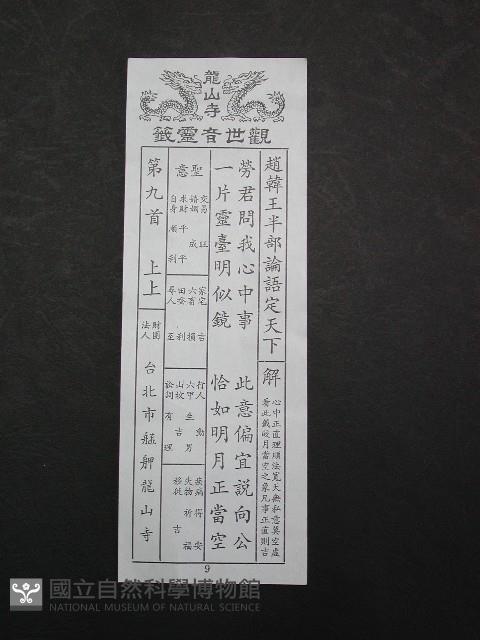 龍山寺
觀世音靈籤
趙韓王半部論語定天下
解
心中正直理順法寬大無私意莫空虛
看此籤皎月當空之象凡事正直則吉
勞君問我心中事 此意偏宜說向公
一片靈臺明似鏡 恰如明月正當空
聖意
交易 旺
婚姻 成
求財 平平
自身 順利
家宅 吉
六畜 損
田蚕 利
尋人 至
行人 動
六甲 生男
山坟 吉
訟詞 有理
疾病 得安
失物
祈福
移徙 吉
第九首 上上
財團法人
台北市艋舺龍山寺
9
國立自然科學博物館
NATIONAL MUSEUM OF NATURAL SCIENCE